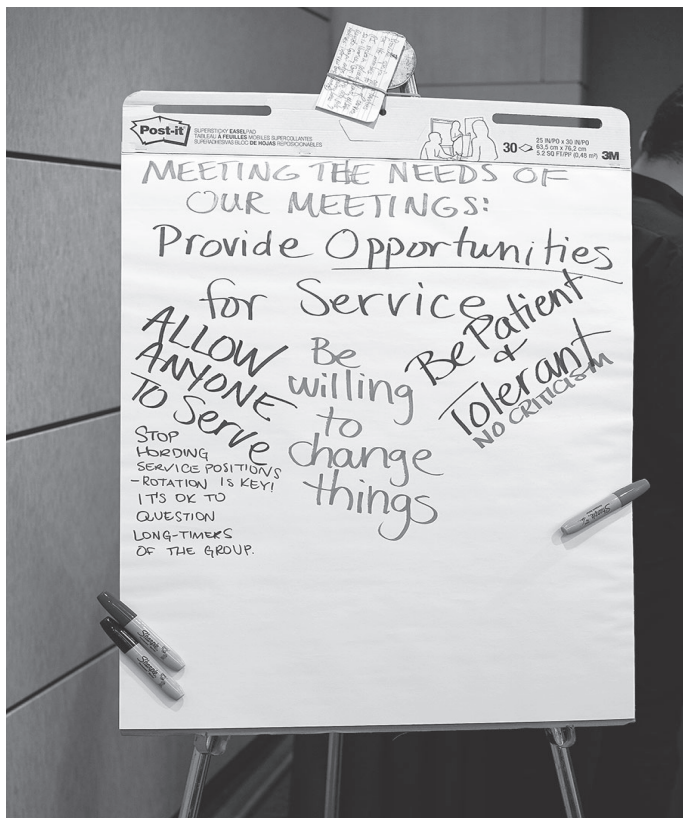 Post-it
SUPERSTICKY EASELPAD
TABLEAU À FEUILLES MOBILES SUPERCOLLANTES
SUPERADHESIVAS BLOC DE HOJAS REPOSICIONABLES
30
25 IN/PO x 30 IN/PO
63,5 cm x 76,2 cm
5.2 SQ FT/PP (0,48 m²)
3M
MEETING THE NEEDS OF
OUR MEETINGS:
Provide Opportunities
for Service
ALLOW
ANYONE
To Serve
STOP
HORDING
SERVICE POSITIONS
-ROTATION IS KEY!
IT'S OK TO
QUESTION
LONG-TIMERS
OF THE GROUP.
Be
willing
to
change
things
Be Patient
&
Tolerant
NO CRITICISM
Sharpie
Sharpie
Sharpie